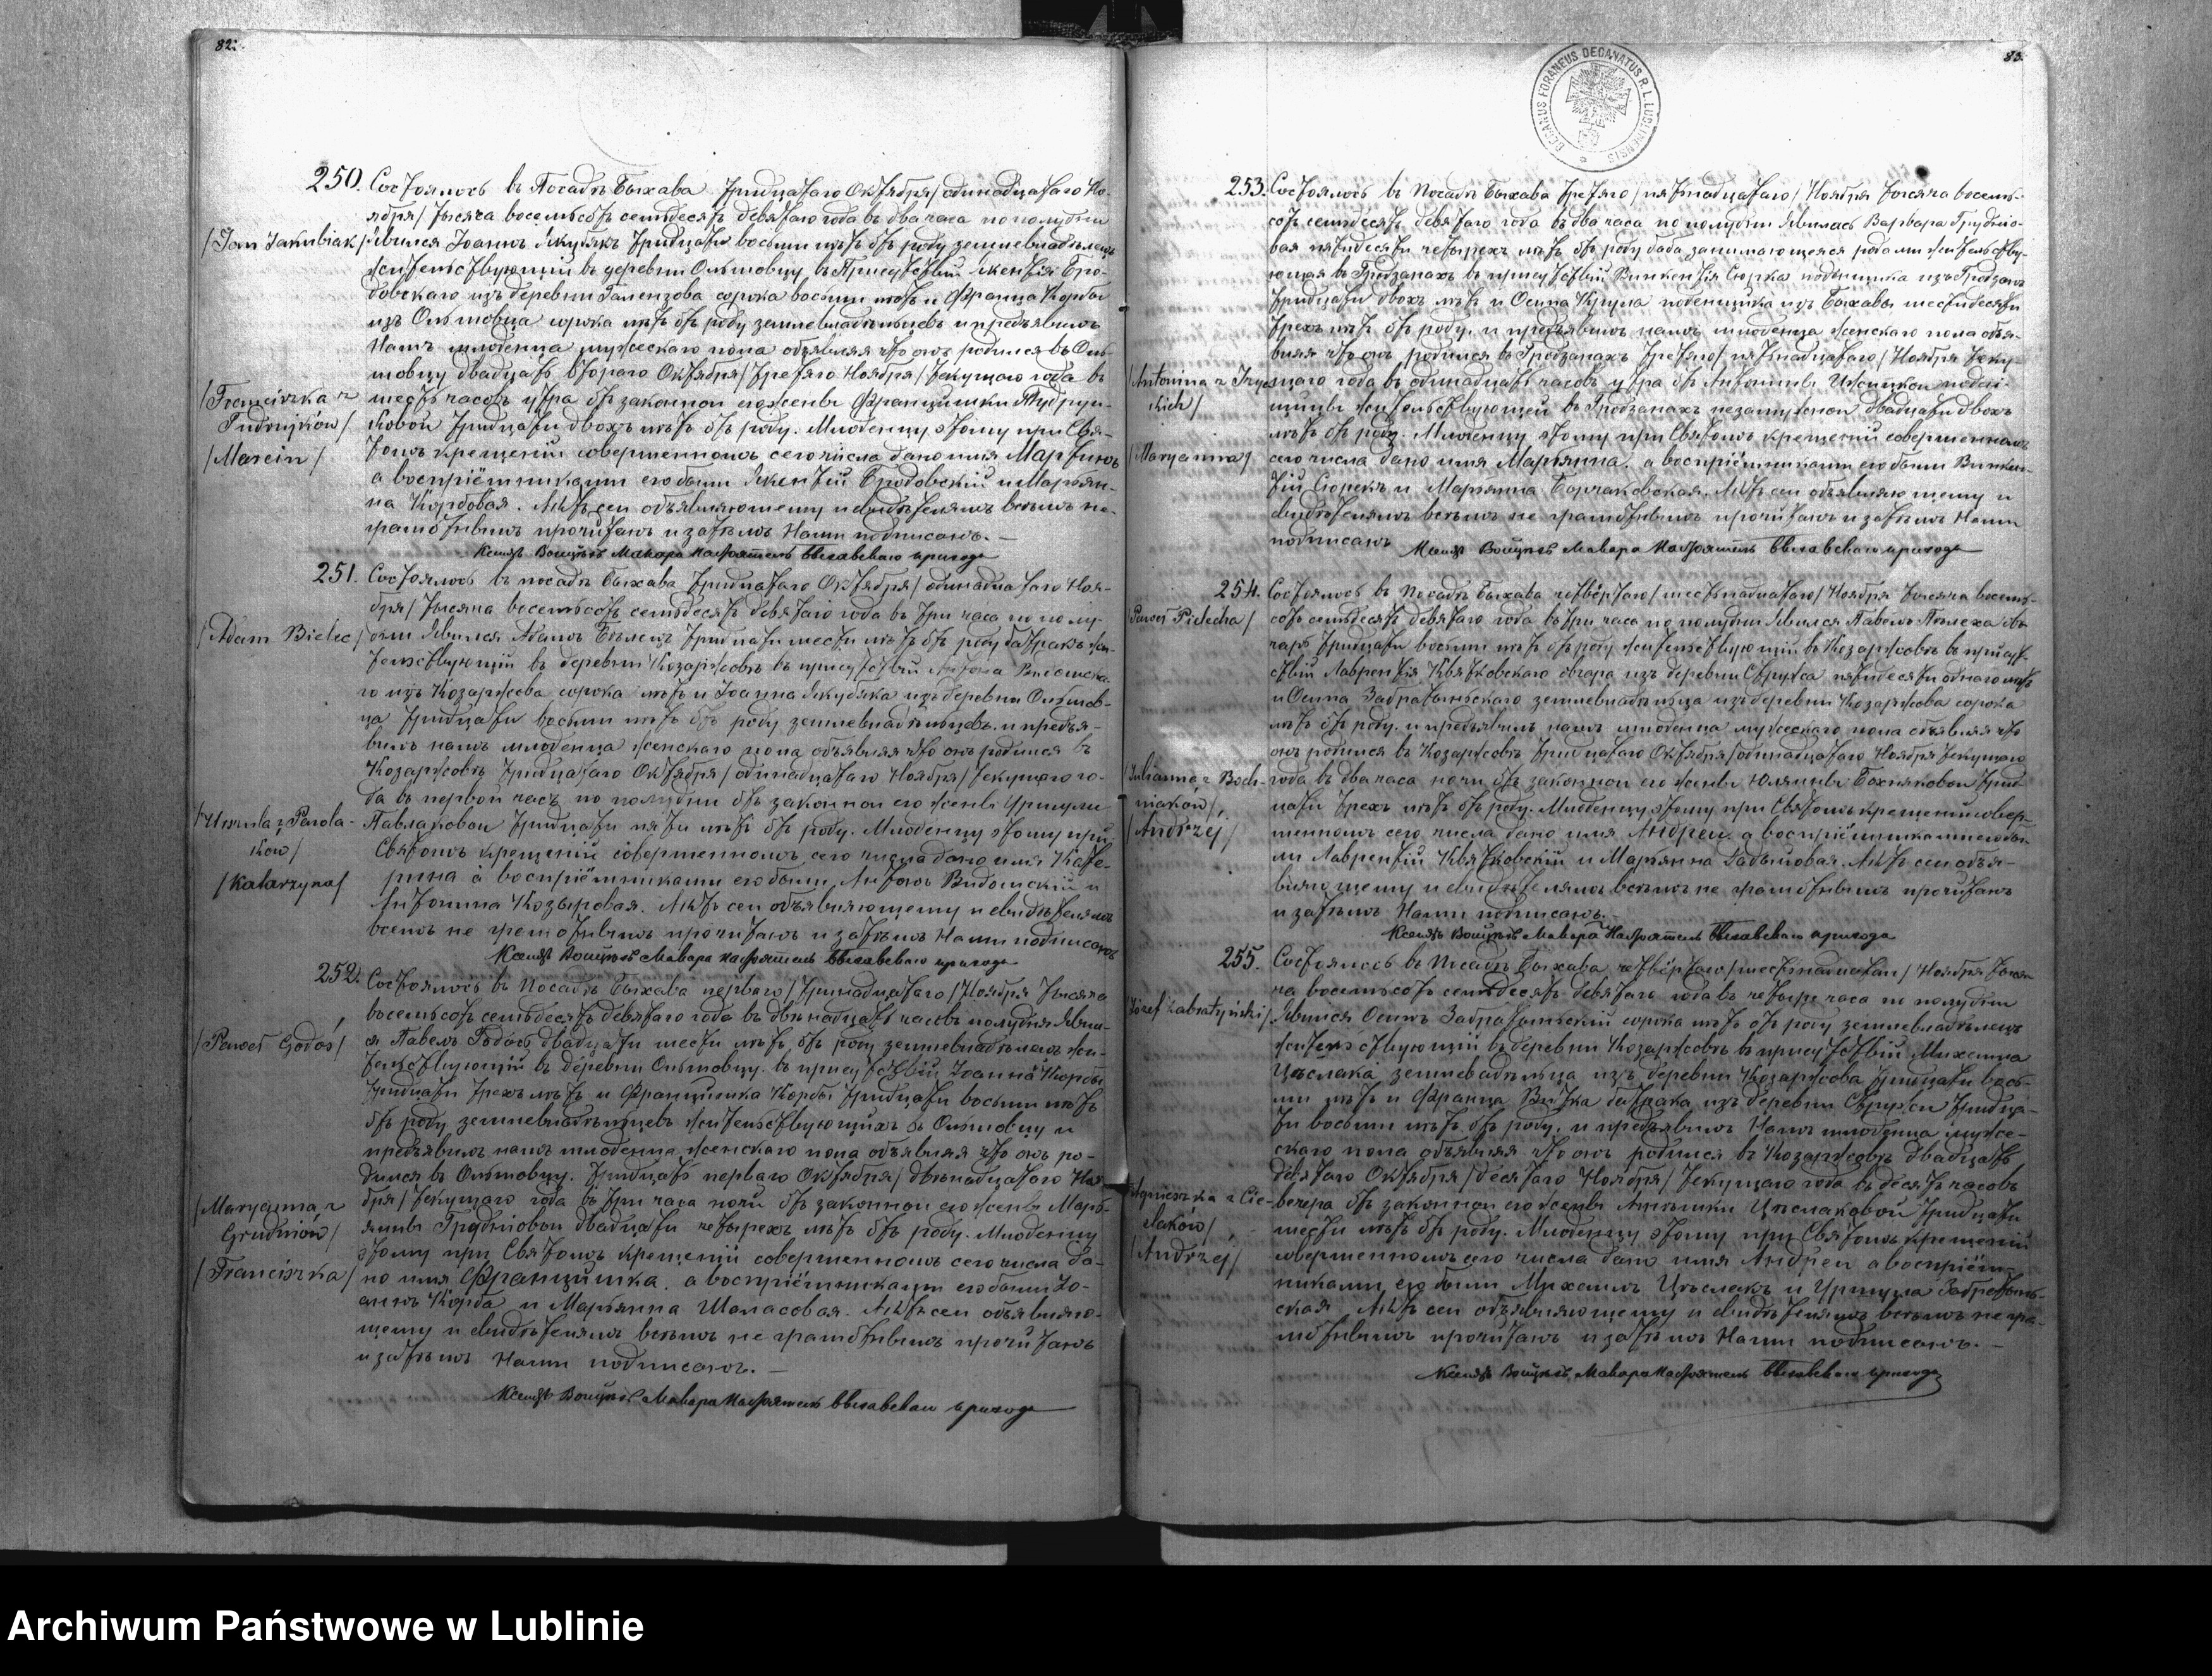 82.
250. Состоялось въ Посадѣ Быхава тридцатаго Октября /одинадцатаго Но-
ября/ тысяча восемьсотъ семьдесятъ девятаго года въ два часа по полудни
/Jan Jakubiak/ Явился Іоаннъ Якубякъ тридцати восьми лѣтъ отъ роду землевладѣлецъ
жительствующій въ деревни Ольшовцу, въ Присутствіи Бро-
довскаго изъ деревни сорока восьми лѣтъ и Франца Корбы
изъ Ольшовца сорока лѣтъ отъ роду землевладѣльцевъ и предъявилъ
Намъ младенца мужескаго пола объявляя что онъ родился въ Оль-
шовцу двадцать втораго Октября /третяго Ноября/ текущаго года въ
/Franciszka z
шесть часовъ утра отъ законной его жены Францишки
Tudrujków/
ковой тридцати двохъ лѣтъ отъ роду. Младенцу этому при Свя-
/Marcin/
томъ крещеніи совершенномъ сего числа дано имя Мартинъ
а воспріёмниками его были Бродовскій и Марьян-
на Корбовая. Актъ сей объявляющему и свидѣтелямъ всѣмъ не-
грамотнымъ прочитанъ и затѣмъ Нами подписанъ. —
Ксендзъ Войцѣхъ Мавара Настоятель Быхавскаго прихода
251. Состоялось въ посадѣ Быхава тридцатаго Октября /одинадцатаго Ноя-
бря/ тысяча восемьсотъ семьдесятъ девятаго года въ три часа по полу-
/Adam Bielec/
Явился Адамъ Бѣлецъ тридцати шести лѣтъ отъ роду батракъ жи-
тельствующій въ деревни Козаржовѣ въ присутствіи Антона Видомска-
го изъ Козаржова сорока лѣтъ и Іоанна Якубяка изъ деревни Ольшов-
ца тридцати восьми лѣтъ отъ роду землевладѣльцевъ. и предъя-
вилъ намъ младенца женскаго пола объявляя что онъ родился въ
Козаржовѣ тридцатаго Октября /одинадцатаго Ноября/ текущаго го-
да въ первой часъ по полудни отъ законной его жены Уршули
/Urszula z Pawla-
Павлаковой тридцати пяти лѣтъ отъ роду. Младенцу этому при
ków/
Святомъ крещеніи совершенномъ сего числа дано имя Кате-
/Katarzyna/
рина а воспріёмниками его были Антонъ Видомскій и
Антонина Козыровая. Актъ сей объявляющему и свидѣтелямъ
всемъ не грамотнымъ прочитанъ и затѣмъ Нами подписанъ
Ксендзъ Войцѣхъ Мавара Настоятель Быхавскаго прихода
252. Состоялось въ Посадѣ Быхава перваго /тринадцатаго/ Ноября тысяча
восемьсотъ семьдесятъ девятаго года въ двѣнадцать часовъ полудня Явил-
/Paweł Godoś/
ся Павелъ Годось двадцати шести лѣтъ отъ роду землевладѣлецъ жи-
тельствующій въ деревни Ольшовцу. въ присутствіи Іоанна Корбы
тридцати трехъ лѣтъ и Францишка Корбы тридцати восьми лѣтъ
отъ роду землевладѣльцевъ жительствующихъ въ Ольшовцу и
предъявилъ намъ младенца женскаго пола объявляя что онъ ро-
дился въ Ольшовцу. тридцать перваго Октября /двѣнадцатаго Ноя-
бря/ текущаго года въ три часа ночи отъ законной его жены Марь-
/Maryanna z
янны Грудніовой двадцати четырехъ лѣтъ отъ роду. Младенцу
Grudniów/
этому при Святомъ крещеніи совершенномъ сего числа да-
/Franciszka/
но имя Францишка. а воспріёмниками его были Іо-
аннъ Корба и Марьянна Шаласовая. Актъ сей объявляю-
щему и свидѣтелямъ всѣмъ не грамотнымъ прочитанъ
и затѣмъ Нами подписанъ. —
Ксендзъ Войцѣхъ Мавара Настоятель Быхавскаго прихода
83.
DECANUS FORANEUS DECANATUS R. L. LUBLINENSIS
253. Состоялось въ Посадѣ Быхава третяго /пятнадцатаго/ Ноября тысяча восемь-
сотъ семьдесятъ девятаго года въ два часа по полудни Явилась Варвара Грудніо-
вая пятидесяти четырехъ лѣтъ отъ роду баба занимающаяся родами жительству-
ющая въ Гродзанахъ въ присутствіи Викентія Сюрка изъ Гродзанъ
тридцати двохъ лѣтъ и Осипа Крула поденщика изъ Быхавы шестидесяти
трехъ лѣтъ отъ роду. и предъявилъ намъ младенца женскаго пола объя-
вляя что онъ родился въ Гродзанахъ третяго /пятнадцатаго/ Ноября теку-
/Antonina z
щаго года въ одинадцать часовъ утра отъ Антонины поден-
skich/
щицы жительствующей въ Гродзанахъ незамужной двадцати двохъ
лѣтъ отъ роду. Младенцу этому при Святомъ крещеніи совершенномъ
/Maryanna/
сего числа дано имя Марьянна. а воспріёмниками его были Викен-
тій Сюрекъ и Марьянна Борчаковская. Актъ сей объявляющему и
свидѣтелямъ всѣмъ не грамотнымъ прочитанъ и затѣмъ Нами
подписанъ
Ксендзъ Войцѣхъ Мавара Настоятель Быхавскаго прихода
254. Состоялось въ Посадѣ Быхава четвёртаго /шестнадцатаго/ Ноября тысяча восемь-
/Paweł Pielecha/
сотъ семьдесятъ девятаго года въ три часа по полудни Явился Павелъ Пѣлеха ов-
чаръ тридцати восьми лѣтъ отъ роду жительствующій въ Козаржовѣ въ присут-
ствіи Лаврентія Квятковскаго овчара изъ деревни Стрыжа пятидесяти одного лѣтъ
и Осипа Забратыньскаго землевладѣльца изъ деревни Козаржова сорока
лѣтъ отъ роду. и предъявилъ намъ младенца мужескаго пола объявляя что
онъ родился въ Козаржовѣ тридцатаго Октября /одинадцатаго Ноября текущаго
/Julianna z Boch-
года въ два часа ночи отъ законной его жены Юлянны Бохняковой трид-
niaków/
цати трехъ лѣтъ отъ роду. Младенцу этому при Святомъ крещеніи совер-
/Andrzej/
шенномъ сего числа дано имя Андрей. а воспріёмниками его бы-
ли Лаврентій Квятковскій и Марьянна Гадыновая. Актъ сей объя-
вляющему и свидѣтелямъ всѣмъ не грамотнымъ прочитанъ
и затѣмъ Нами подписанъ. —
Ксендзъ Войцѣхъ Мавара Настоятель Быхавскаго прихода
255. Состоялось въ Посадѣ Быхава четвёртаго /шестнадцатаго/ Ноября тыся-
ча восемьсотъ семьдесятъ девятаго года въ четыре часа по полудни
/Józef Zabratyński/
Явился Осипъ Забратыньскій сорока лѣтъ отъ роду землевладѣлецъ
жительствующій въ деревни Козаржовѣ въ присутствіи Михаила
Цѣслака землевладѣльца изъ деревни Козаржова тридцати вось-
ми лѣтъ и Франца Витка батрака изъ деревни Стрыжи тридца-
ти восьми лѣтъ отъ роду. и предъявилъ Намъ младенца муже-
скаго пола объявляя что онъ родился въ Козаржовѣ двадцать
девятаго Октября /десятаго Ноября/ текущаго года въ десять часовъ
/Agnieszka z Cie-
вечера отъ законной его жены Агнѣшки Цѣслаковой тридцати
ślaków/
шести лѣтъ отъ роду. Младенцу этому при Святомъ крещеніи
/Andrzej/
совершенномъ сего числа дано имя Андрей а воспріём-
никами его были Михаилъ Цѣслакъ и Уршула Забратынь-
ская. Актъ сей объявляющему и свидѣтелямъ всѣмъ не гра-
мотнымъ прочитанъ и затѣмъ Нами подписанъ. —
Ксендзъ Войцѣхъ Мавара Настоятель Быхавскаго прихода
Archiwum Państwowe w Lublinie